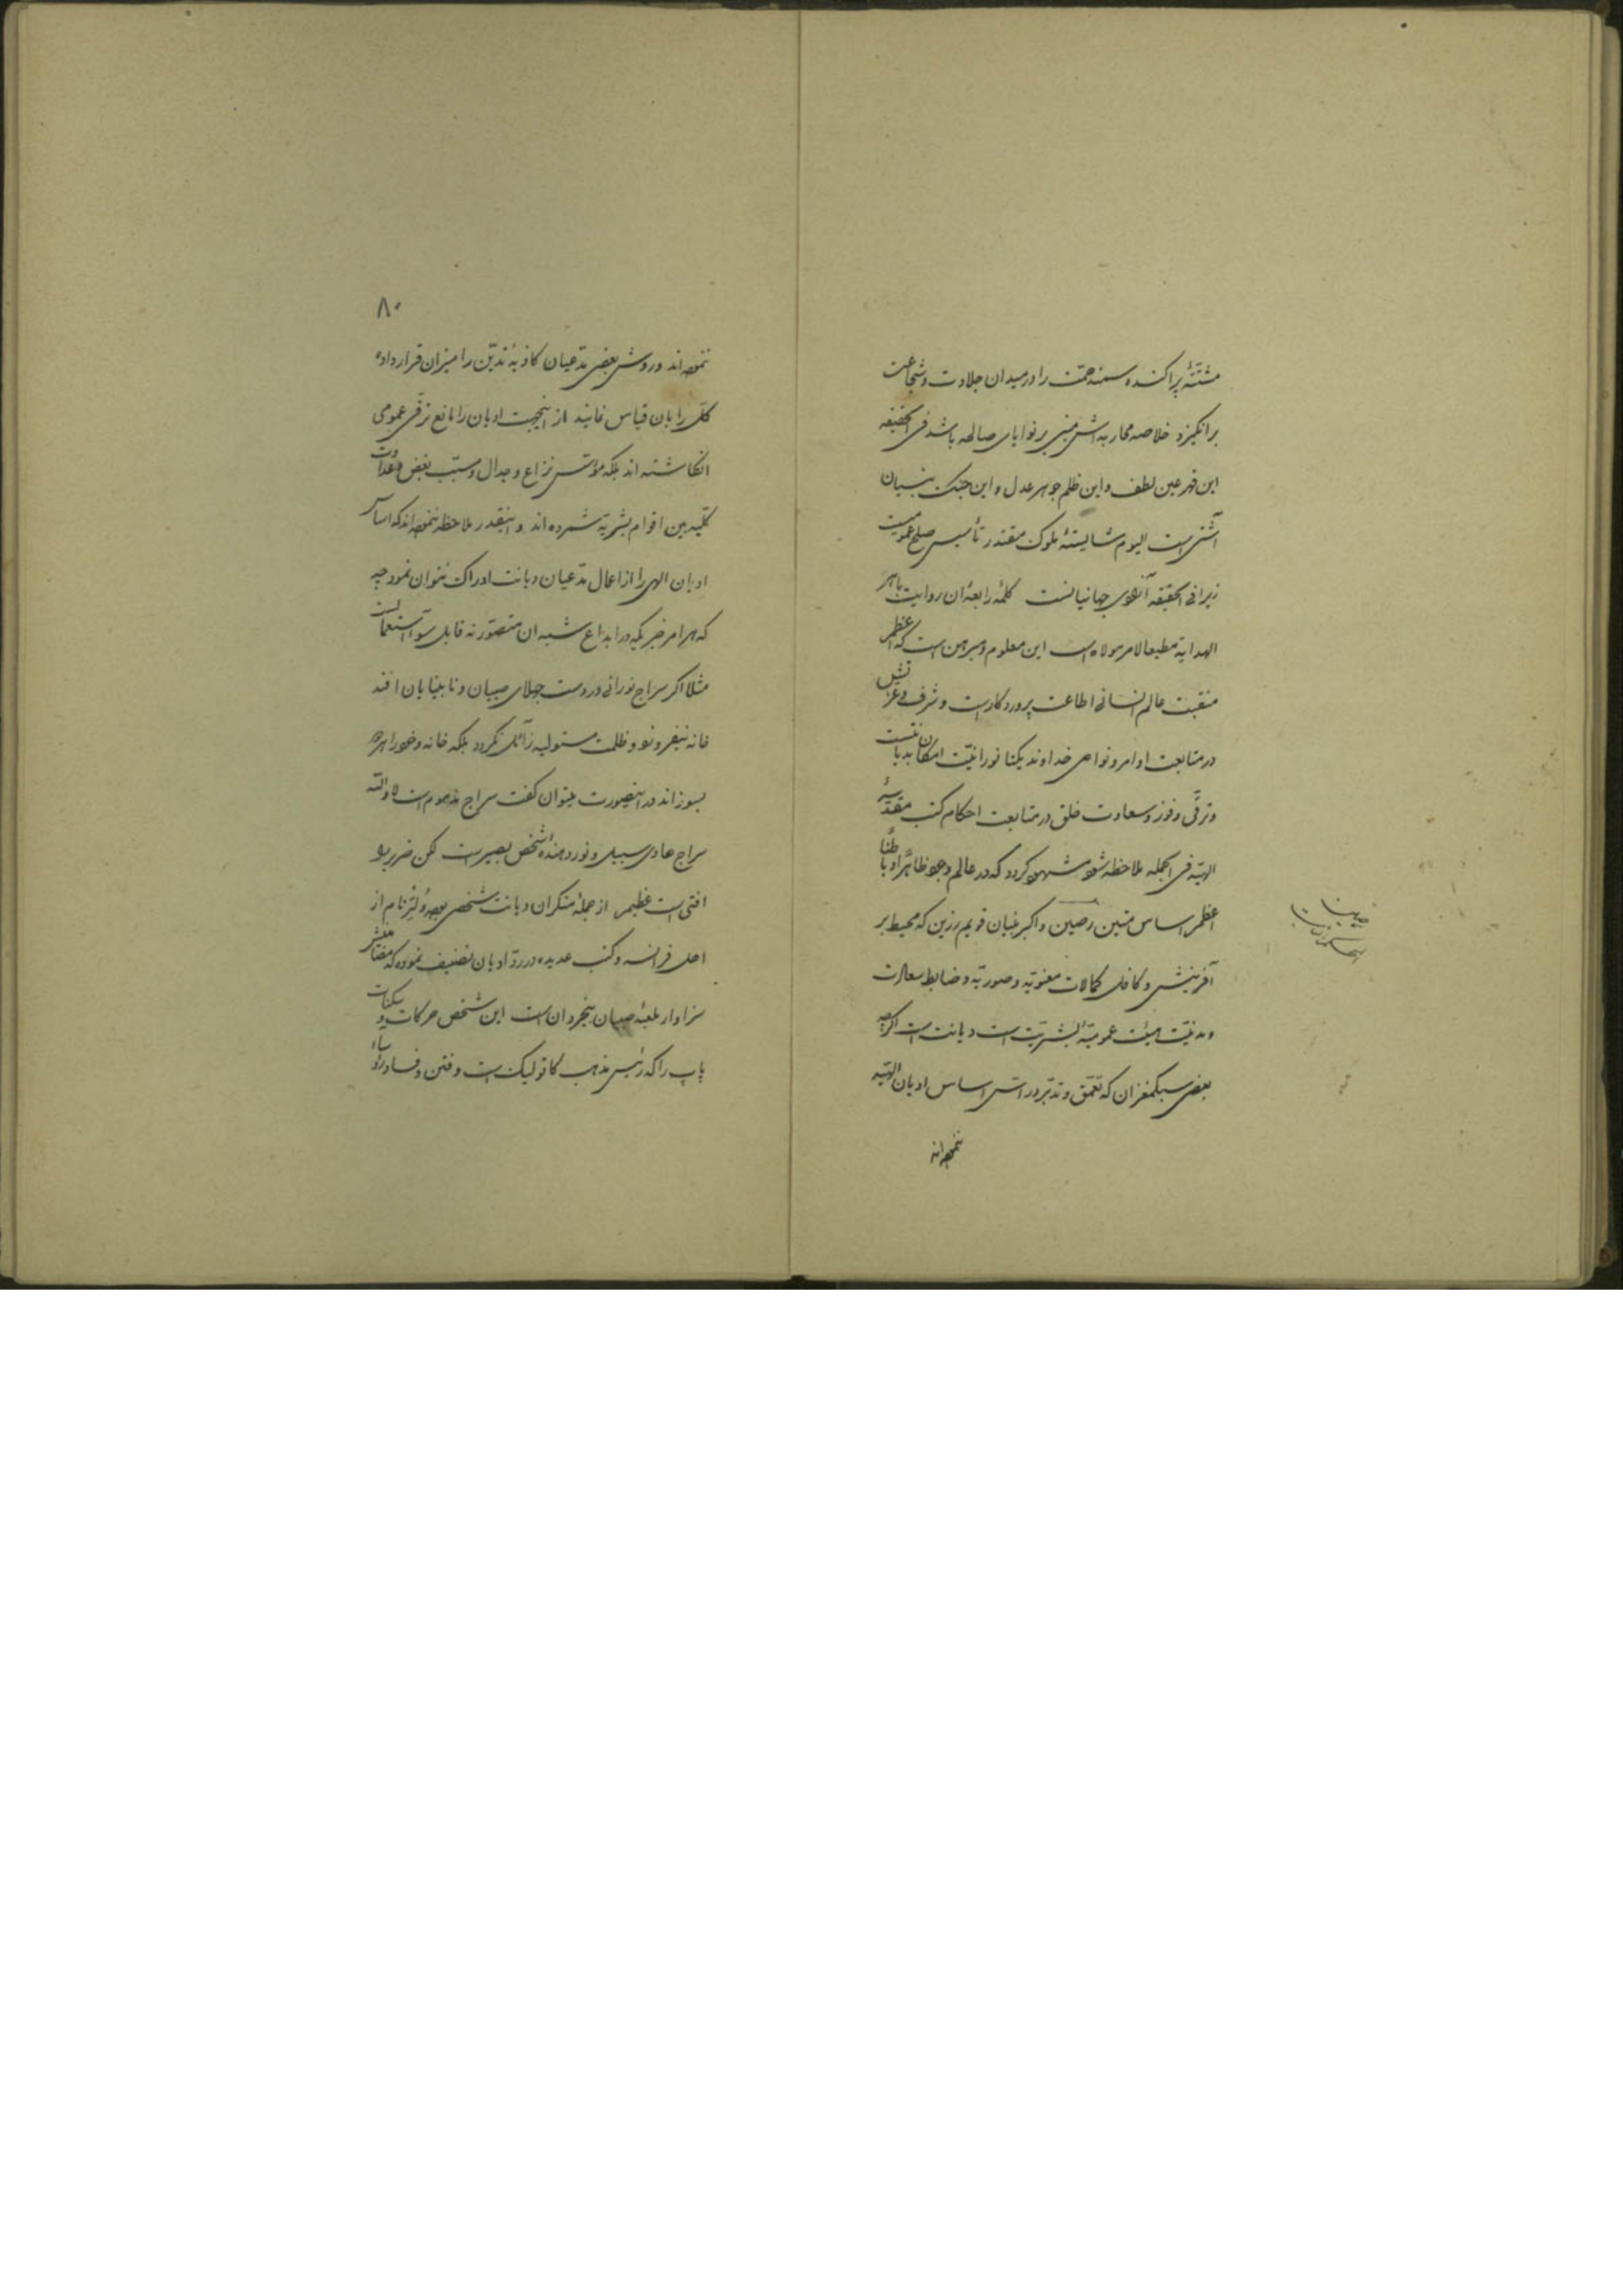 مشتّتهٔ پراکنده سمند همّت را در میدان جلادت و شجاعت
برانگیزد خلاصه محاربه‌اش مبنی بر نوایای صالحه باشد فی الحقیقه
این قهر عین لطف و این ظلم جوهر عدل و این جنگ بنیان
آشتی است الیوم شایستهٔ ملوک مقتدر تأسیس صلح عمومیست
زیرا فی الحقیقه آزادگی جهانیانست کلمهٔ رابعهٔ ان روایت باهر
الهدایة مطیعا لامر مولاه است این معلوم و مبرهن است که اعظم
منقبت عالم انسانی اطاعت پروردگار است و شرف و عزّتش
در متابعت اوامر و نواهی خداوند یکتا نورانیّت امکان بدیانتست
و ترقّی و فوز و سعادت خلق در متابعت احکام کتب مقدّسهٔ
الهیّه فی الجمله ملاحظه شود مشهود گردد که در عالم وجود ظاهرًا و باطنًا
اعظم اساس متین رصین و اکبر بنیان قویم رزین که محیط بر
آفرینش و کافل کمالات معنویّه و صوریّه و ضابط سعادت
و مدنیّت هیئت عمومیّهٔ بشریّت است دیانت است اگرچه
بعضی سبکمغزان که تعمّق و تدبّر در اسّ اساس ادیان الهیّه
ننموده‌اند
۸۰
ننموده‌اند و روش بعضی مدّعیان کاذبهٔ تدیّن را میزان قرار داده
کلّ را بان قیاس نمایند از اینجهت ادیان را مانع ترقّی عمومی
انگاشته‌اند بلکه مؤسّس نزاع و جدال و مسبّب بغض و عداوت
کلّیه بین اقوام بشریّه شمرده‌اند و اینقدر ملاحظه ننموده‌اند که اساس
ادیان الهی را از اعمال مدّعیان دیانت ادراک نتوان نمود چه
که هر امر خیریکه در ابداع شبه ان متصوّر نه قابل سوء استعمالست
مثلا اگر سراج نورانی در دست جهلای صبیان و نابینایان افتد
خانه نیفروزد و ظلمت مستولیه زائل نگردد بلکه خانه و خود را هر دو
بسوزاند در اینصورت میتوان گفت سراج مذموم است لا واللّه
سراج هادی سبیل و نور دهندهٔ شخص بصیر است لکن ضریر را
افتی است عظیم از جملهٔ منکران دیانت شخصی بوده وُلتِر نام از
اهل فرانسه و کتب عدیده در ردّ ادیان تصنیف نموده که مضامینش
سزاوار ملعبهٔ صبیان بیخردان است این شخص حرکات و سکنات
پاپ را که رئیس مذهب کاتولیک است و فتن و فساد رؤساء